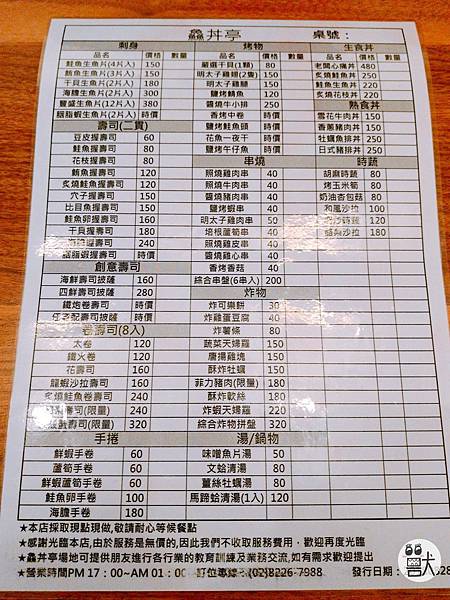 鱻丼亭 桌號：
刺身
品名 價格 數量
鮭魚生魚片(4片入) 150
鮪魚生魚片(3片入) 150
旗魚生魚片(2片入) 120
海陸生魚片(12片入) 300
豐盛生魚片(12片入) 380
胭脂蝦生魚片(2片入) 時價
壽司(二貫)
豆皮握壽司 60
鮭魚握壽司 80
花枝握壽司 80
鮪魚握壽司 120
炙燒鮭魚握壽司 120
穴子握壽司 150
比目魚握壽司 150
鮭魚卵握壽司 160
干貝握壽司 180
握壽司 240
胭脂蝦握壽司 時價
創意壽司
海鮮壽司披薩 160
四鮮壽司披薩 280
鐵炮卷壽司 時價
配壽司披薩 時價
卷壽司(8入)
太卷 120
鐵火卷 120
花壽司 160
龍蝦沙拉壽司 160
炙燒鮭魚卷壽司 240
壽司(限量) 240
壽司(限量) 320
手捲
鮮蝦手卷 60
蘆筍手卷 60
鮮蝦蘆筍手卷 60
鮭魚卵手卷 100
海膽手卷 180
烤物
品名 價格 數量
嚴選干貝(1顆) 80
明太子雞翅(2隻) 150
明太子雞腿 150
鹽烤鯖魚 120
醬燒牛小排 250
香烤中卷 時價
鹽烤鮭魚頭 時價
花魚一夜干 時價
鹽烤午仔魚 時價
串燒
照燒雞肉串 40
照燒牛肉串 40
醬燒牛肉串 40
鹽烤蝦串 40
明太子雞肉串 50
培根蘆筍串 40
照燒雞皮串 40
醬燒雞心串 40
香烤香菇 40
綜合串盤(6串入) 200
炸物
炸可樂餅 30
炸雞蛋豆腐 40
炸薯條 80
蔬菜天婦羅 150
唐揚雞塊 150
酥炸牡蠣 150
菲力豬肉(限量) 180
酥炸軟絲 180
炸蝦天婦羅 220
綜合炸物拼盤 320
湯/鍋物
味噌魚片湯 50
文蛤清湯 80
薑絲牡蠣湯 80
馬蹄蛤清湯(1入) 120
生食丼
品名 價格 數量
老闆心痛丼 480
炙燒鮭魚丼 250
鮭魚生魚丼 220
炙燒花枝丼 220
熟食丼
雪花牛肉丼 150
香蔥豬肉丼 150
牡蠣魚排丼 250
日式豬排丼 250
時蔬
胡麻時蔬 80
烤玉米筍 80
奶油杏包菇 80
和風沙拉 100
時蔬 120
沙拉 180
★本店採取現點現做,敬請耐心等候餐點
★感謝光臨本店,由於服務是無價的,因此我們不收取服務費用，歡迎再度光臨
★鱻丼亭場地可提供朋友進行各行業的教育訓練及業務交流,如有需求歡迎提出
★營業時間PM 17：00~AM 01：00 訂位專線：(02)8226-7988 發行日期：
獸犬